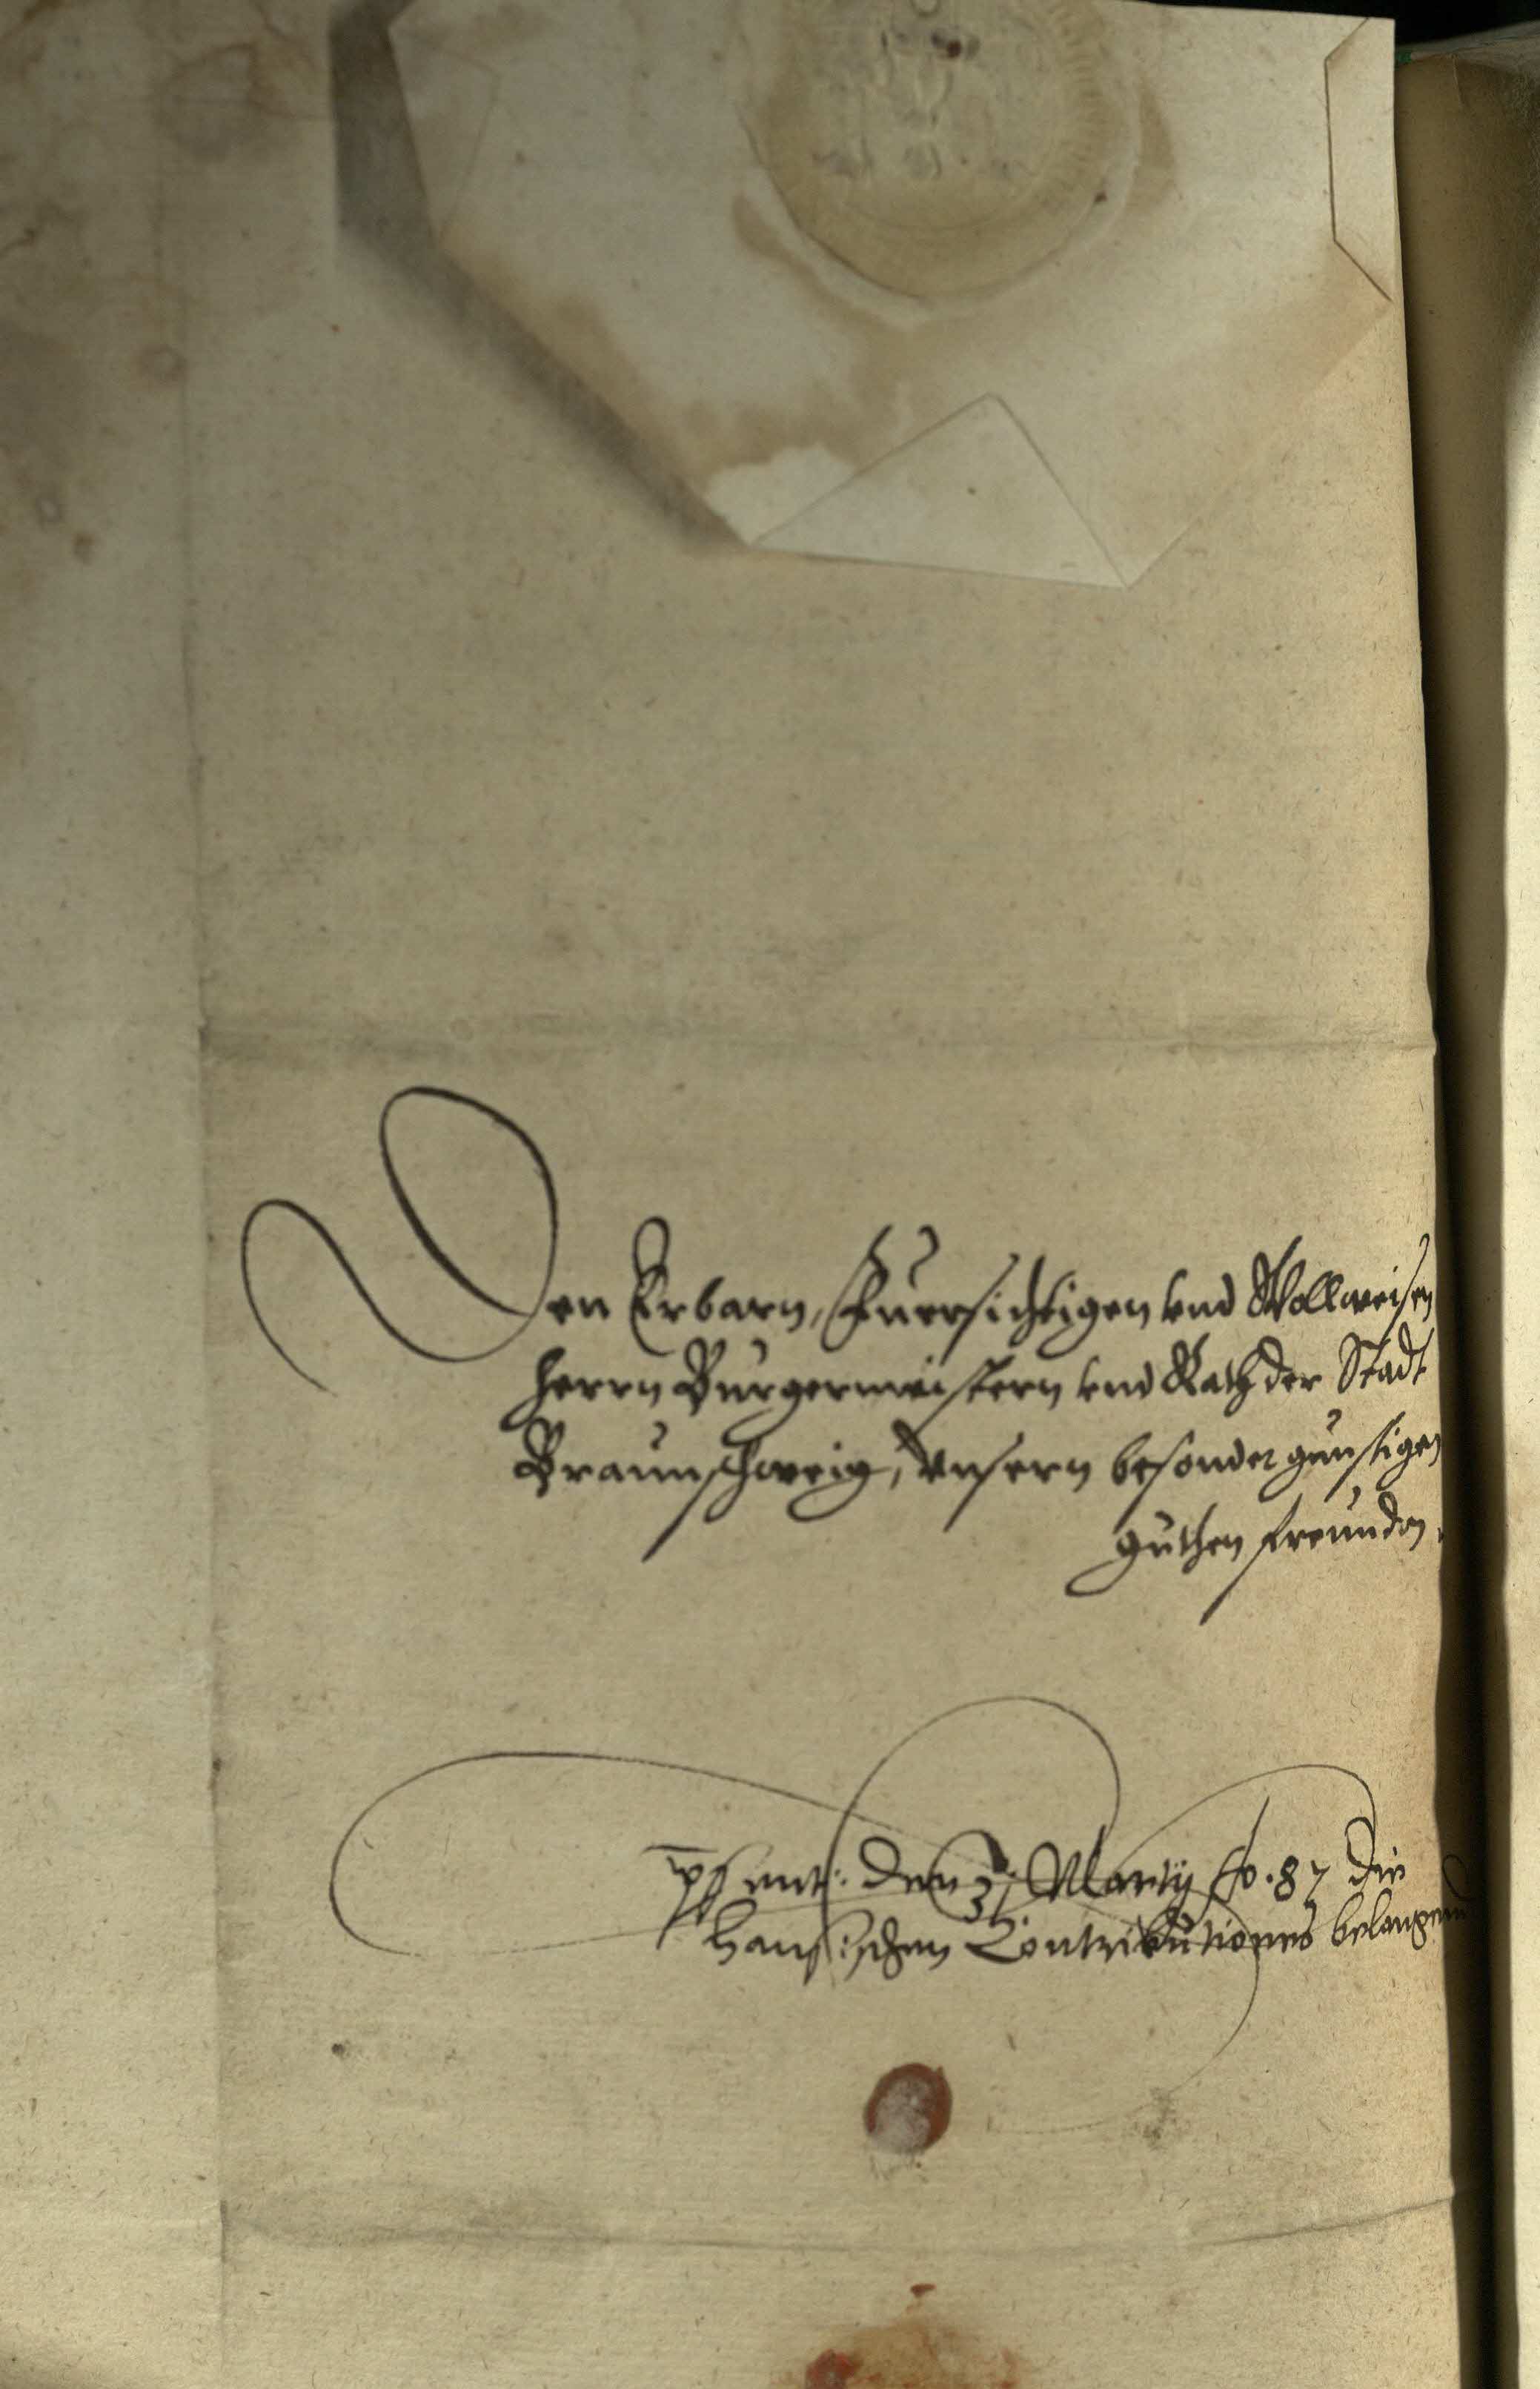 Den Erbarn, Fuersichtigen vnd Wollweisen
Herrn Bürgermeistern vnd Rath der Stadt
Braunschweig, Vnsern besonder günstigen
guthen freunden.
psent: den 31 Martij Ao. 87 die
Hansischen Contributiones belangend